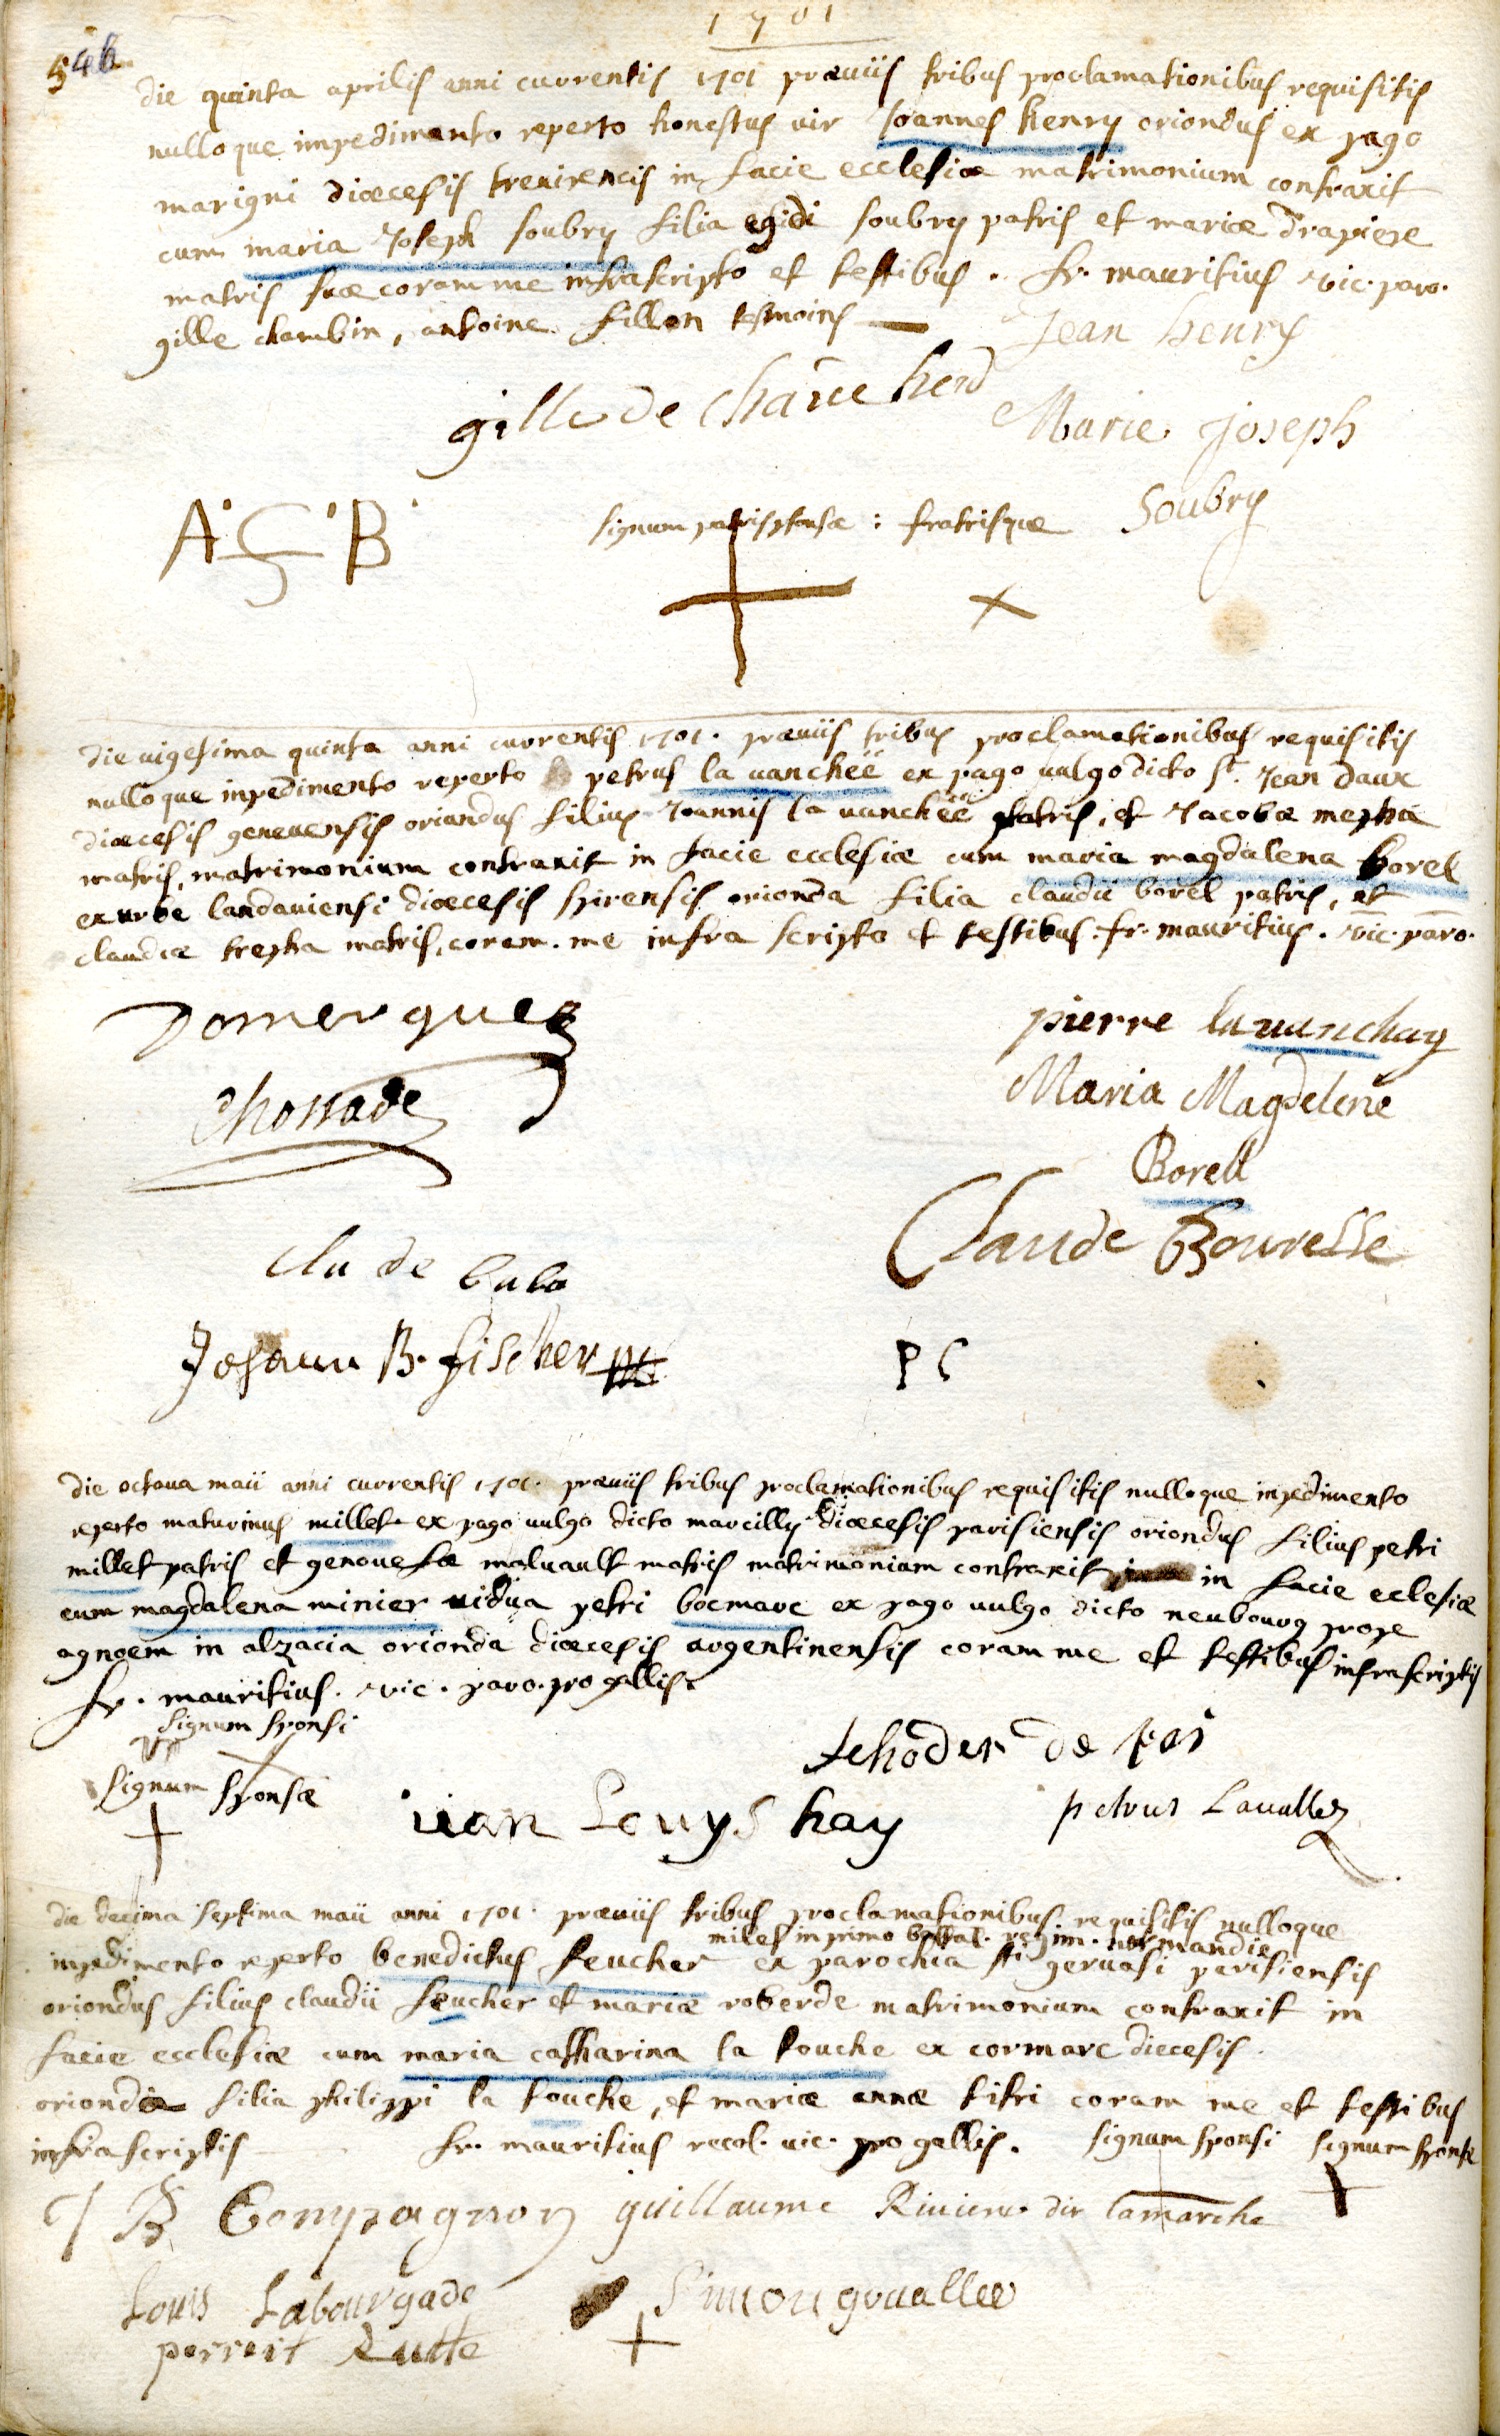 1701
546
die quinta aprilis anni currentis 1701 præuiis tribus proclamationibus requisitis
nulloque impedimento reperto honestus uir Joannes henry oriondus ex pago
marigni diœcesis treuirencis in facie ecclesiæ matrimonium contraxit
cum maria Joseph soubry filia egidi soubry patris et mariæ drapiere
matris suæ coram me infrascripto et testibus. fr. mauritius vic. paro.
gille chambin, antoine fillon tesmoins
Jean henry
gille de
Marie Joseph
Soubry
A G B
signum patris sponsæ : fratrisque
die uigesima quinta anni currentis 1701. præuiis tribus proclamationibus requisitis
nulloque inpedimento reperto petrus la uancheë ex pago uulgo dicto st. Jean daux
diœcesis geneuensis oriundus filius Joannis la uancheë patris, et Jacobæ mepha
matris, matrimonium contraxit in facie ecclesiæ cum maria magdalena borel
ex urbe landauiensi diœcesis spirensis orionda filia claudii borel patris, et
claudiæ trepha matris, coram. me infra scripto et testibus. fr. mauritius. vic. paro.
Domergue
pierre lauanchay
Maria Magdelene
Borell
Claude Bourelle
Johann B. fischer
P C
die octaua maii anni currentis 1701. præuiis tribus proclamationibus requisitis nulloque inpedimento
reperto maturinus millet ex pago uulgo dicto marcilly diœcesis parisiensis oriondus filius petri
millet patris et genouefæ maluault matris matrimonium contraxit in facie eclesiæ
cum magdalena minier uidua petri bocmare ex pago uulgo dicto neubourg prope
agnoem in alzacia orionda diœcesis argentinensis coram me et testibus infrascriptis
fr. mauritius. vic. paro. pro gallis.
signum sponsi
signum sponsæ
uan Louys hay
petrus Lauallez
die decima septima maii anni 1701. præuiis tribus proclamationibus requisitis nulloque
miles in primo battal. regim. normandie
inpedimento reperto benedictus feucher ex parochia sti geruasi parisiensis
oriondus filius claudii feucher et mariæ roberde matrimonium contraxit in
facie ecclesiæ cum maria catharina la touche ex cormarc diecesis
orionda filia philippi la touche, et mariæ annæ titri coram me et testibus
infrascriptis fr. mauritius recol. uic. pro gallis. signum sponsi signum sponsæ
J B Compagnon guillaume Riuiere dit lamarche
Louis Labourgade Simon gouallee